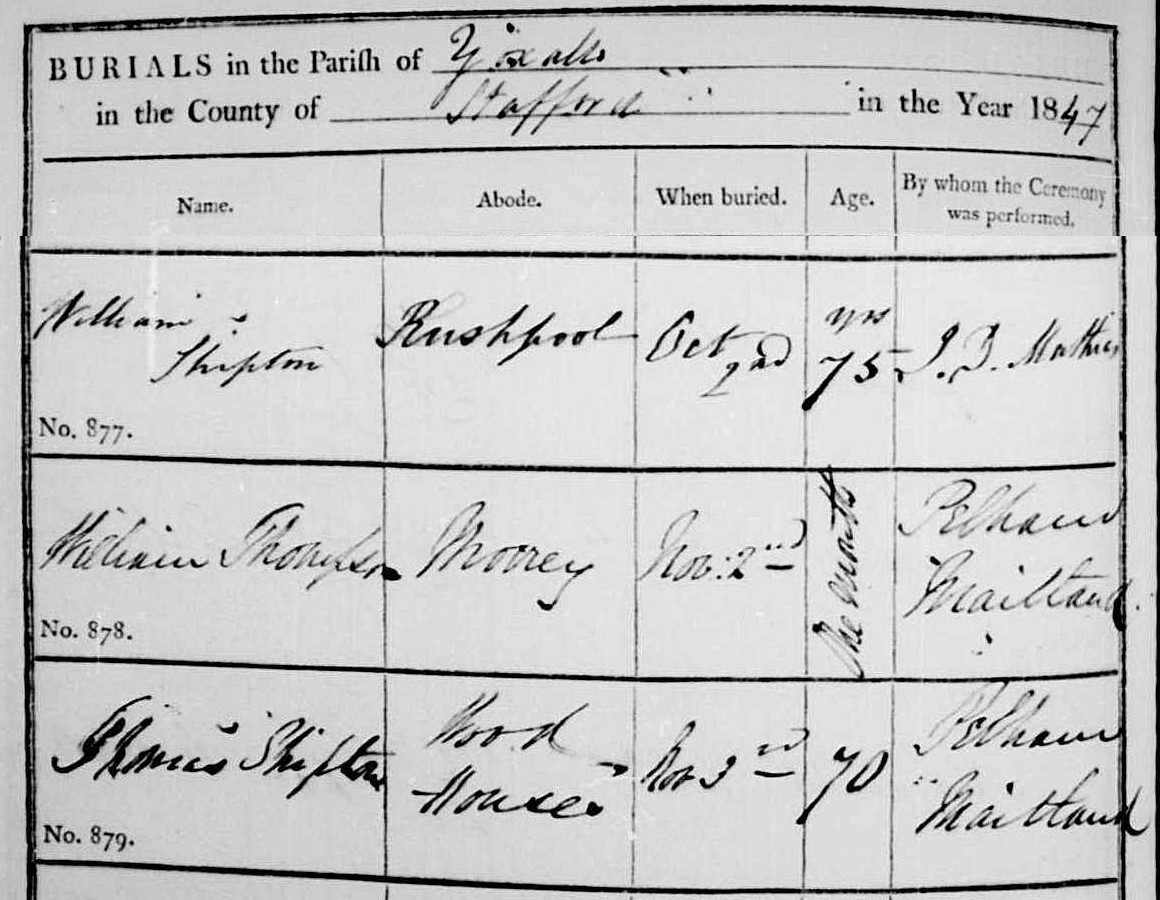 BURIALS in the Parish of Yoxall
in the County of Stafford in the Year 1847
Name. Abode. When buried. Age. By whom the Ceremony was performed.
William Shipton Rushpool Oct 2nd yrs 75 J. D. Mathews
No. 877.
William Thompson Morrey Nov: 2nd One month Pelham Maitland
No. 878.
Thomas Shipton Wood Houses Nov 3rd 70 Pelham Maitland
No. 879.